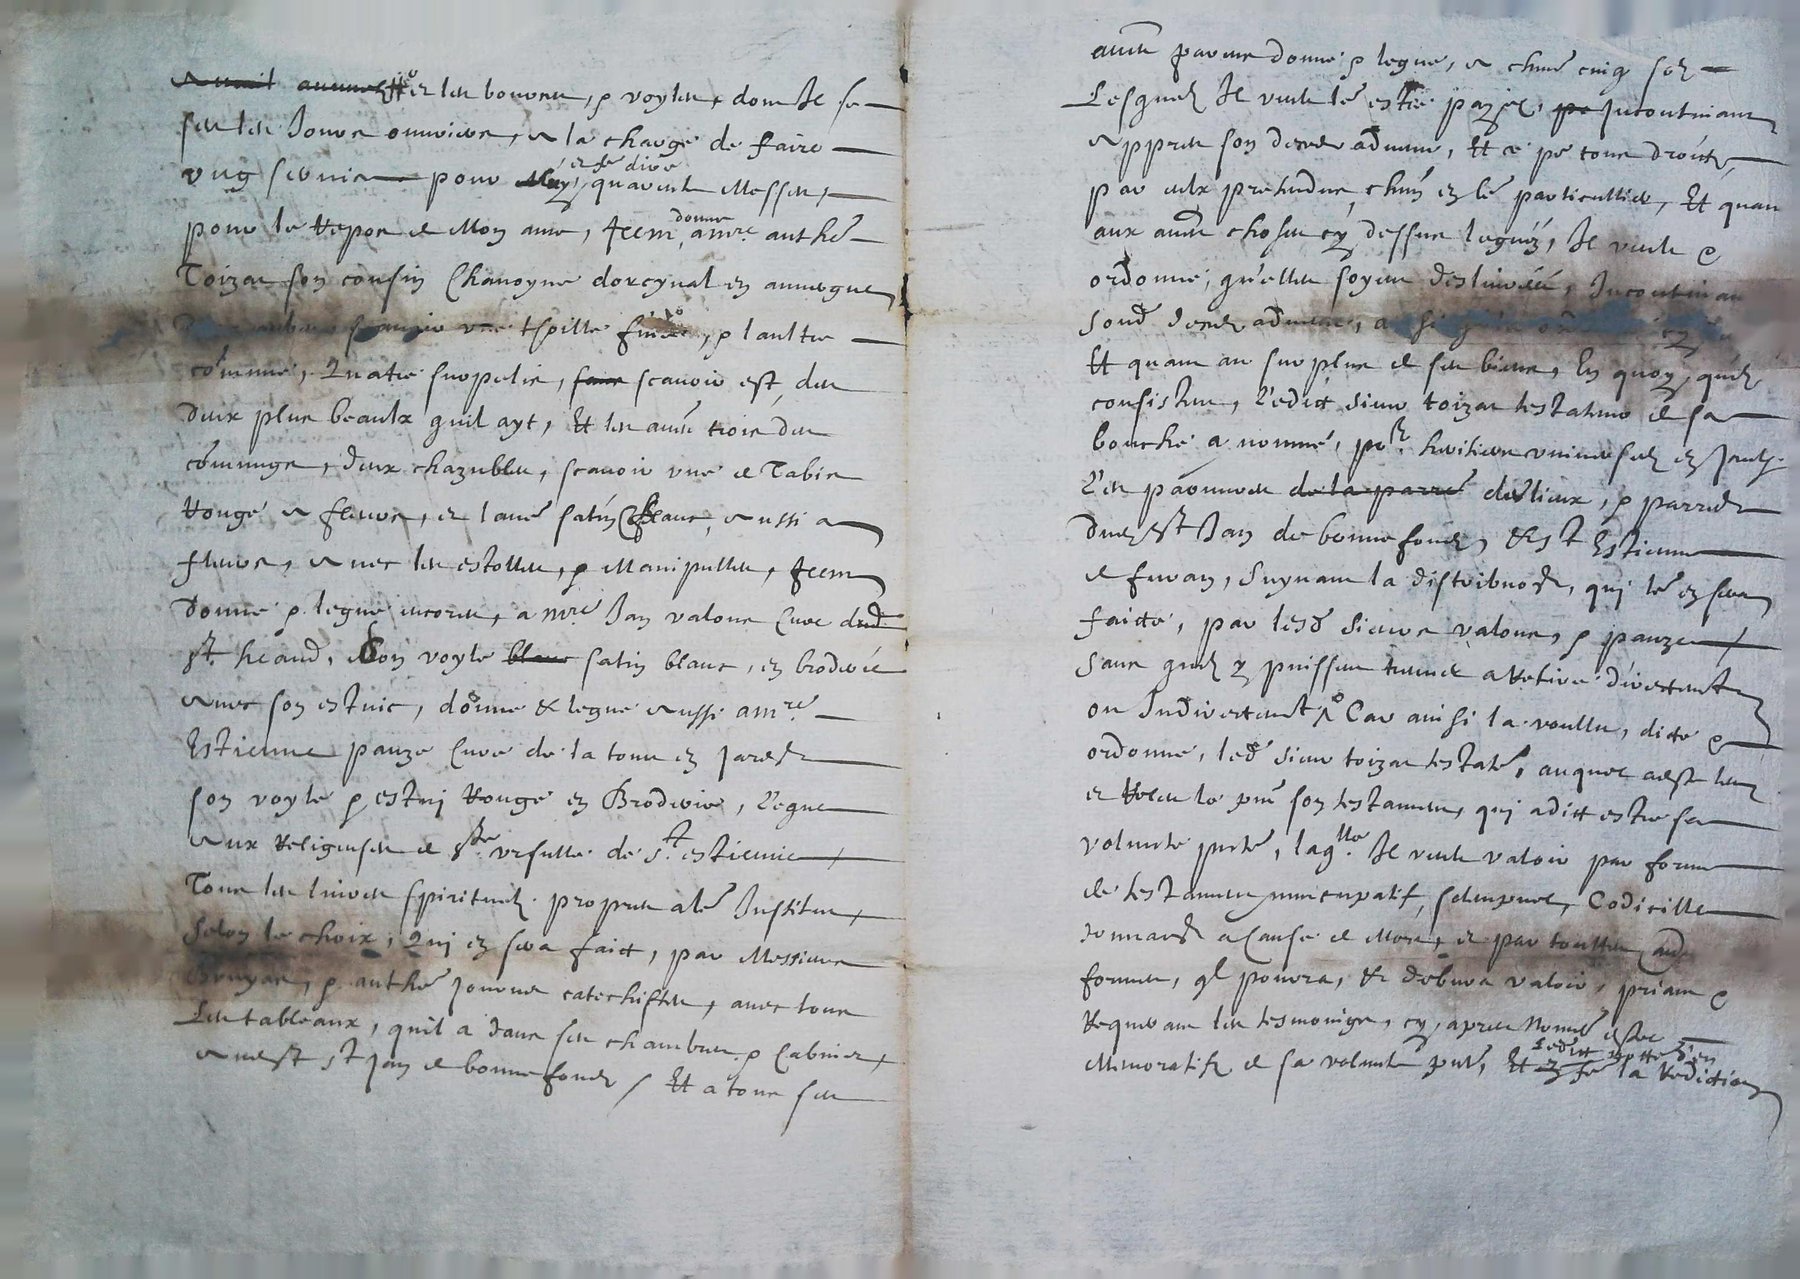 et les bourses, & voyles, dont Il se
sert les Jours ouvriers, a la charge de faire
ung service pour et fe dire quarente Messes,
pour le Repos de Mon ame, Item, donne a mre anthe
Toizat son cousin Chanoyne dorcynal en auvergne,
une fine, & laultre
commune, Quatre surpelis, scavoir est, des
deux plus beaulx quil ayt, Et les autres trois du
commungs, deux chazubles, scavoir une de Tabis
Rouge a fleurs, et lautre satin blanc, aussi a
fleurs, avec les estolles, & Manipulles, Item
donne & legue encores, a mre Jan valous Cure dud
st heand, son voyle satin blanc, en broderie
avec son estuic, donne & legue aussi a mre
Estienne pauze Cure de la tour en Jarestz
son voyle & estui Rouge en Broderie, Legue
aux Religieuses de ste ursulle de st estienne
Tous les livres spirituels propres a leur Institut,
selon le choix, Qui en sera faict, par Messieurs
& anthe Jouvne catechistes, avec tous
Les tableaux, quil a dans ses chambres & Cabinet,
audt st Jan de bonnefondz / Et a tous ses
autres parans donne & legue, a chun cinq solz
Lesquelz Il veult leur estre payes, Incontinant
appres son deces advenu, Et ce pour tous droictz
par eulx pretendus, chun en leur particullier, Et quan
aux autres choses cy dessus legues, Il veult &
ordonne, quelles soyent deslivrees, Incontinan
sond deces advenu,
Et quant au surplus de ses biens, En quoy, quilz
consistent, Ledict sieur toizat testateur de sa
bouche a nomme, pour heritiers universelz
Les paouvres des lieux, & parroisses
dudt st Jan de bonnefondz, & st Estienne
de furan, suyvant la distribution, qui leur en sera
faicte, par lesd sieurs valous, & pauze
sans quilz y puissent Rien a Retire directement
ou Indirectement Car ainsi la voullu, dicte &
ordonne, led sieur toizat testateur, auquel a este leu
et Releu le pnt son testament, qui a dict estre sa
volunte pnte, laqlle Il veult valoir par forme
de testament nuncupatif, solempnel, Codicille
donnation a Cause de Mort, et par touttes autres
formes, ql pourra, & debvra valoir, priant &
Requerant les tesmoings, cy apres Nommes destre
Memoratifz de sa volunte pnte, Et la Rediction